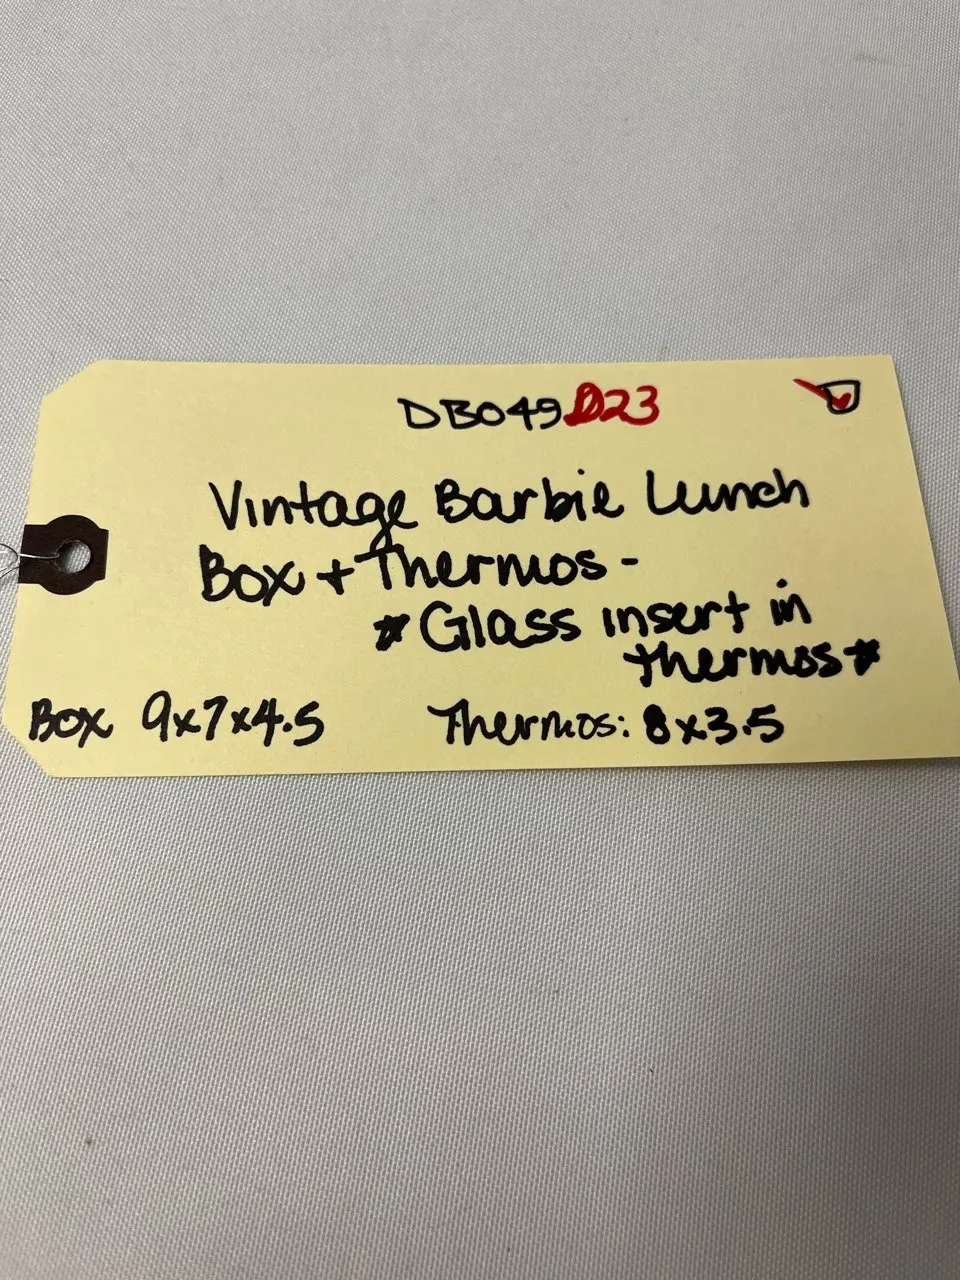 DB049D23
Vintage Barbie Lunch
Box + Thermos -
*Glass insert in
thermos*
Box 9x7x4.5 Thermos: 8x3.5